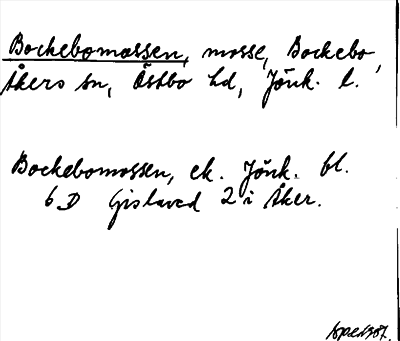 Bockebomossen, mosse, Bockebo,
Åkers sn, Östbo hd, Jönk. l.
Bockebomossen, ek. Jönk. bl.
6 D Gislaved 2 i Åker.